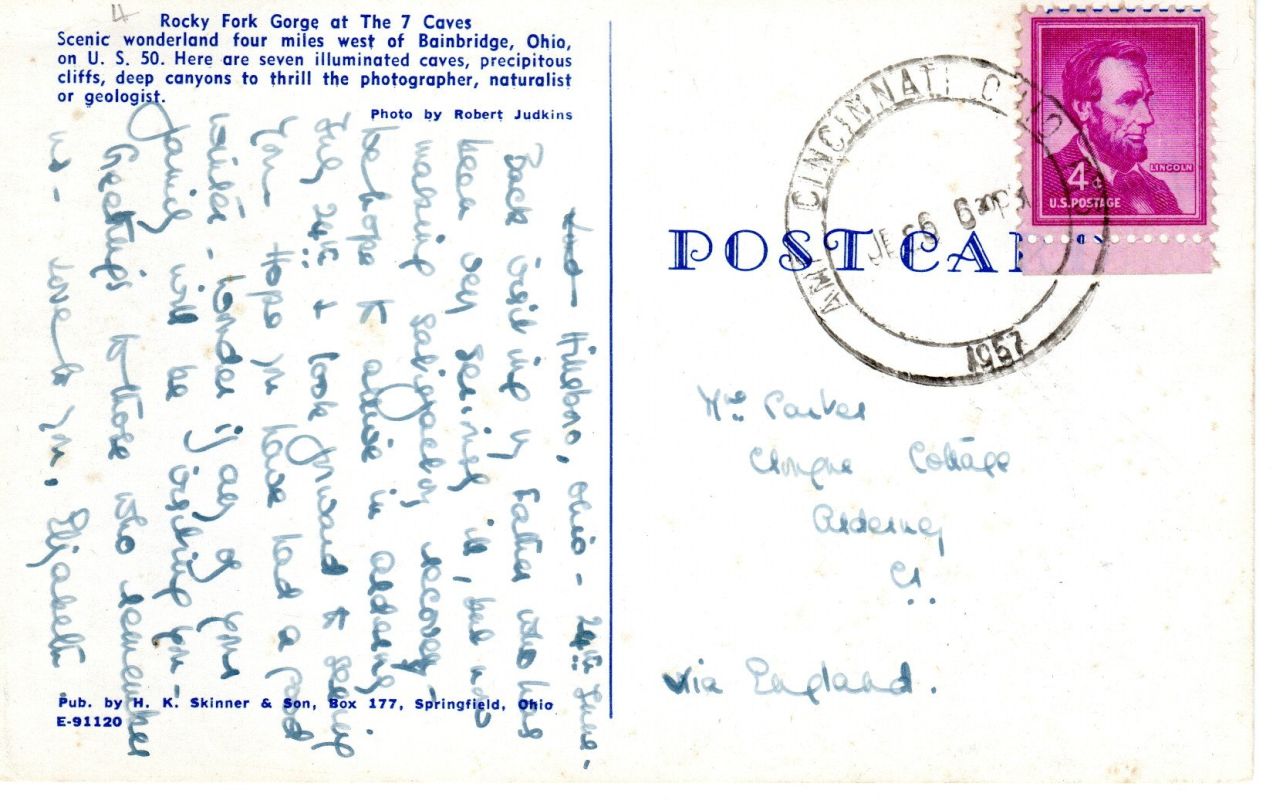 4
Rocky Fork Gorge at The 7 Caves
Scenic wonderland four miles west of Bainbridge, Ohio,
on U. S. 50. Here are seven illuminated caves, precipitous
cliffs, deep canyons to thrill the photographer, naturalist
or geologist.
Photo by Robert Judkins
Hillsboro, Ohio - 24th June -
Back visiting my Father who has
been very seriously ill, but now
making satisfactory recovery -
We hope to arrive in Alderney
July 24th & look forward to seeing
you. Hope you have had a good
winter - wonder if any of your
family will be visiting you -
Greetings to those who remember
us - love to you, Elizabeth
Pub. by H. K. Skinner & Son, Box 177, Springfield, Ohio
E-91120
POST CAR
CINCINNATI OHIO
6 30 PM
1957
LINCOLN
4¢
U.S. POSTAGE
Mrs Parker
Cottage
Alderney
C.I.
via England.